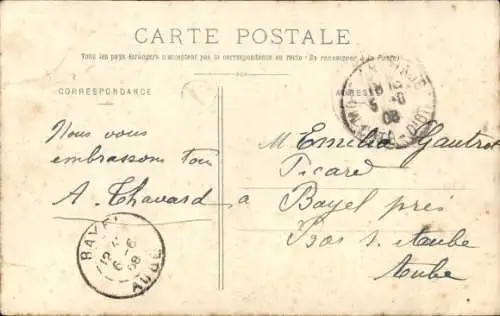 CARTE POSTALE
Tous les pays étrangers n'acceptent pas la correspondance au recto (Se renseigner à la Poste)
CORRESPONDANCE
ADRESSE
Nous vous
embrassons tous
A. Thavard
M Emilia Gautrot
Picard
à Bayel près
Bar s. Aube
Aube
5 -6
08
BAYEL
12
6 -6
08
AUBE